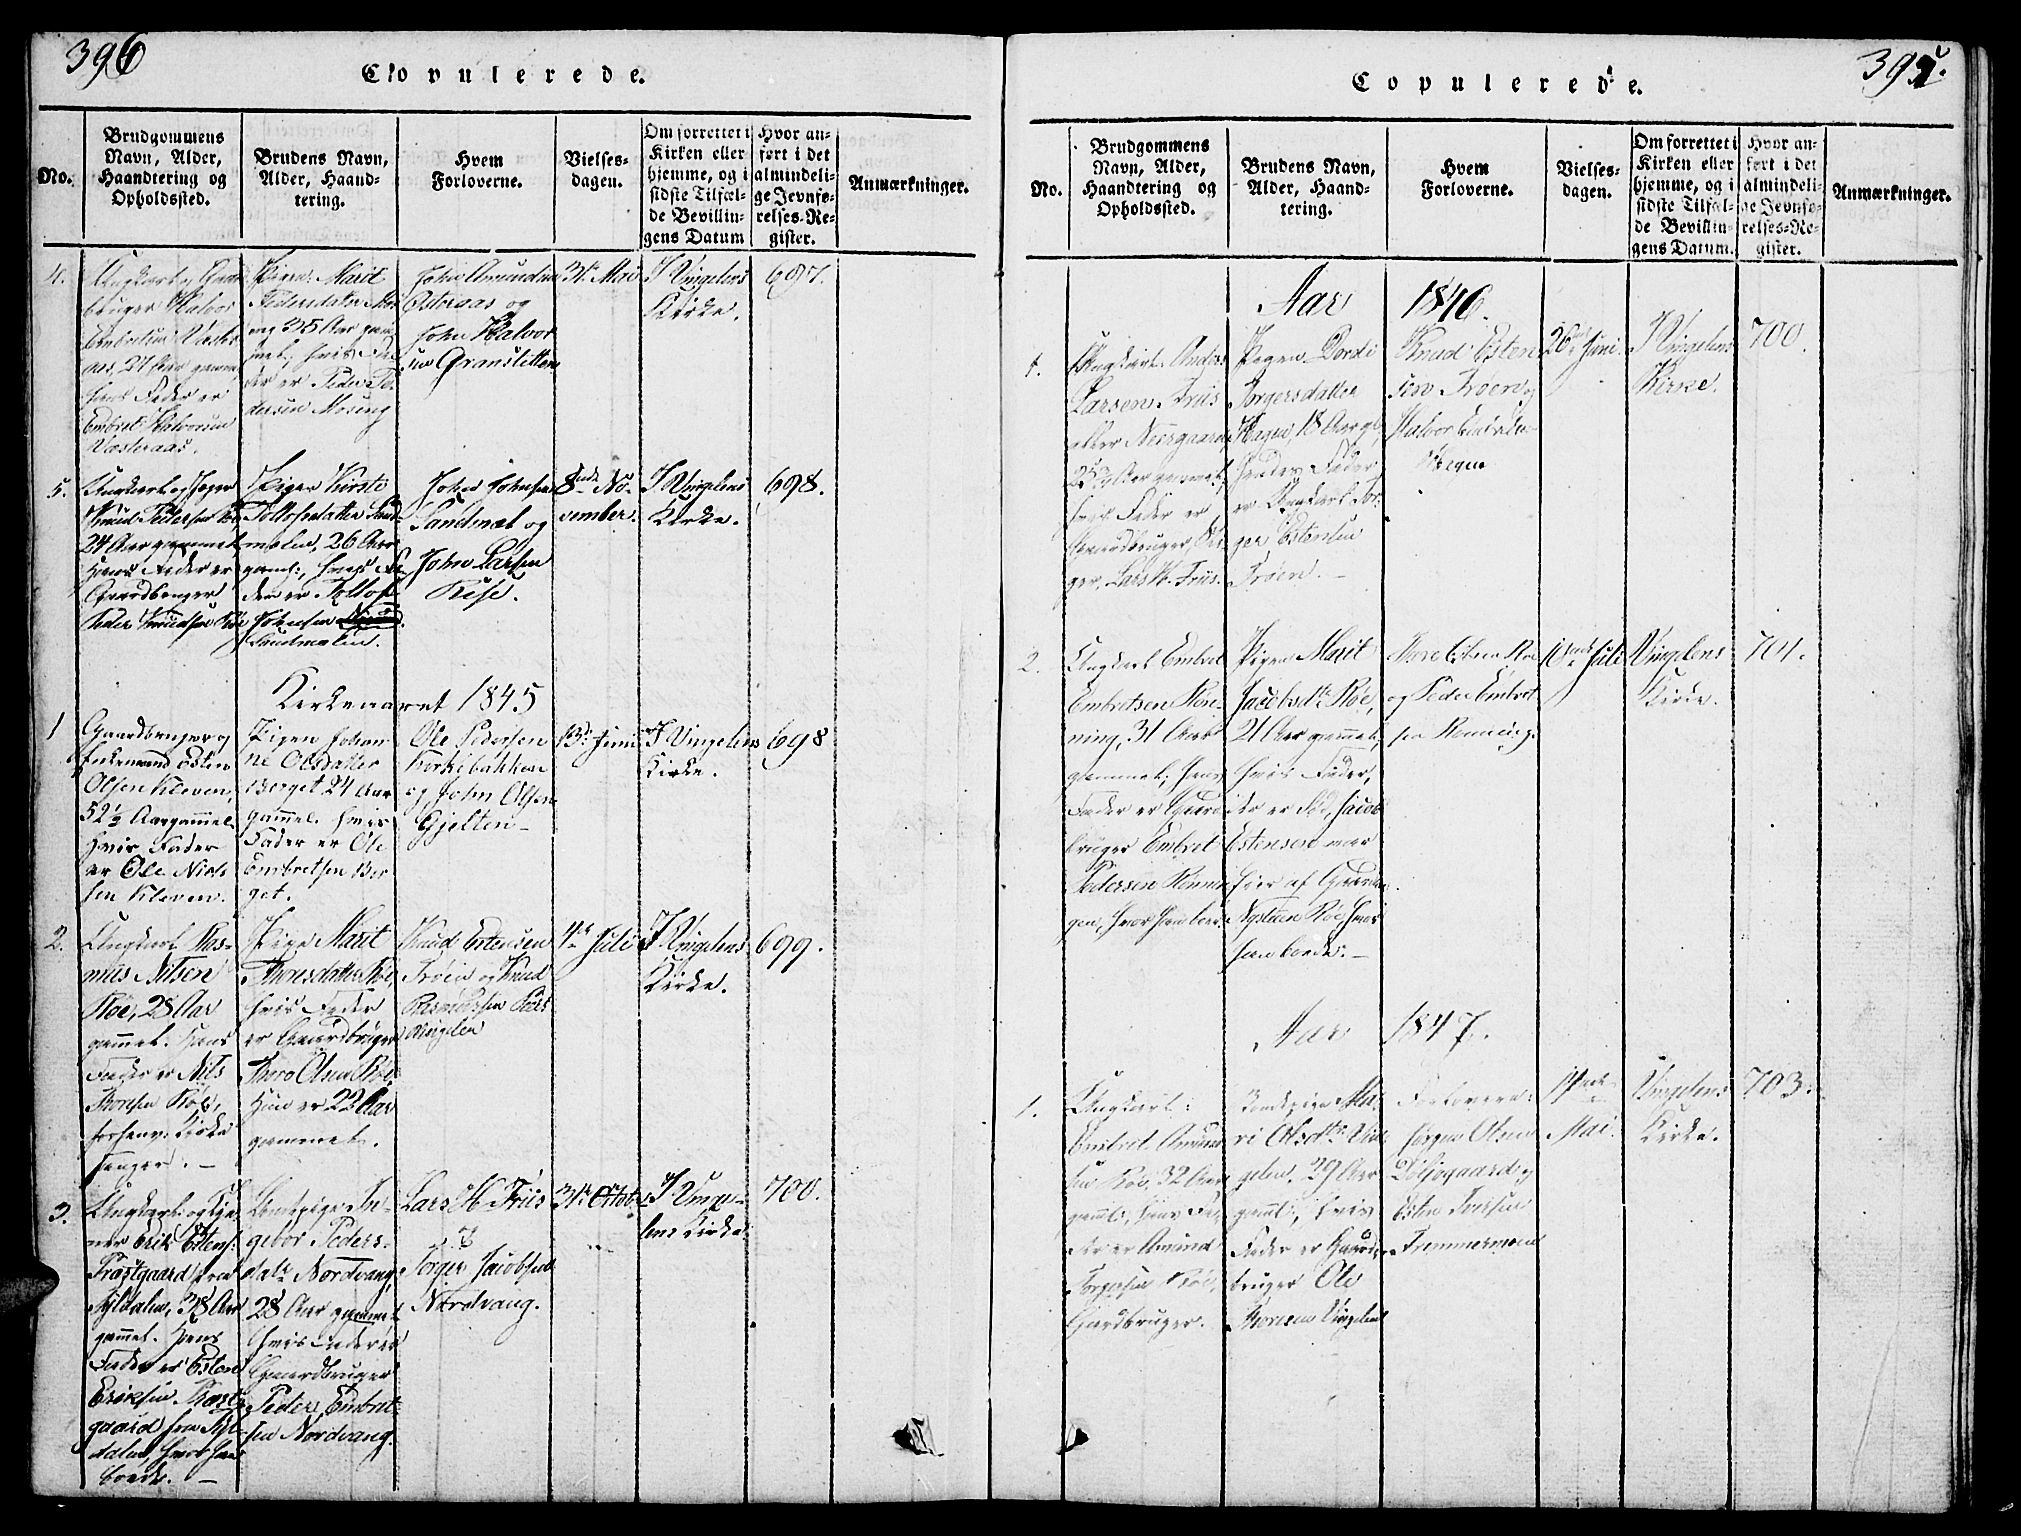 396
Copulerede.
No.
Brudgommens
Navn, Alder,
Haandtering og
Opholdssted.
Brudens Navn,
Alder, Haand-
tering.
Hvem
Forloverne.
Vielses-
dagen.
Om forrettet i
Kirken eller
hjemme, og i
sidste Tilfæl-
de Bevillin-
gens Datum
Hvor an-
ført i det
almindeli-
ge Jevnfø-
relses-Re-
gister.
Anmærkninger.
4.
Ungkarl og Gaard-
bruger Halvor
Embretsen
27 Aar gammel
hans Fader er
Embret Halvorsen
Vesteraas.
Pigen Marit
Pedersdatter
35 Aar gam-
mel, hvis Fa-
der er Peder Pe-
dersen Moseng
John Amundsen
Østeraas og
John Halvor-
sen
31te Mai
I Vingelens
Kirke.
697.
5.
Ungkarl og Jæger
Knud Pedersen Røe
24 Aar gammel
Hans Fader er
Gaardbruger
Peder Knudsen Røe
Pigen Kirsti
Tollofsdatter Sand-
mælen, 26 Aar
gaml:, hvis Fa-
der er Tollof
Johnsen
Sandmælen.
John Johnsen
Sandmæl og
John Larsen
Rise.
8nde No-
vember.
I Vingelens
Kirke.
698.
Kirkeaaret 1845
1
Gaardbruger og
Enkemand Esten
Olsen Kleven,
52½ Aar gammel
Hvis Fader
er Ole Niels-
sen Kleven.
Pigen Johan-
ne Olsdatter
Berget 24 Aar
gammel. hvis
Fader er Ole
Embretsen Ber-
get.
Ole Pedersen
Kirkebakken
og John Olsen
Gjelten
13de Juni
I Vingelens
Kirke.
698
2.
Ungkarl Ras-
mus Nilsen
Røe, 28 Aar
gammel. hans
Fader er Nils
Thoresen Røe,
Kirke
sanger. —
Pige Marit
Thoresdatter Røe,
hvis Fader
er Gaardbruger
Thore Olsen Røe.
Hun er 22 Aar
gammel.
Knud Estensen
Trøen og Knud
Rasmussen
Vingelen
4de Juli
I Vingelens
Kirke.
699.
3.
Ungkarl og Tje-
ner Erik Estens:
fra
Tyldalen, 38 Aar
gammel. Hans
Fader er Esten
Eriksen
gaard fra Tyl-
dalen, hvor han
boede. —
Bondepige In-
gebor Peders-
datr Nordvang,
28 Aar gammel
hvis Fader er
Gaardbruger
Peder Embret-
sen Nordvang.
Lars H. Friis
og
Torger Jacobsen
Nordvang.
31te Octob.
I Vinge-
lens Kirke.
700.
395.
Copulerede.
No.
Brudgommens
Navn, Alder,
Haandtering og
Opholdssted.
Brudens Navn,
Alder, Haand-
tering.
Hvem
Forloverne.
Vielses-
dagen.
Om forrettet i
Kirken eller
hjemme, og i
sidste Tilfæl-
de Bevillin-
gens Datum.
Hvor an-
ført i det
almindeli-
ge Jevnfø-
relses-Re-
gister.
Anmærkninger.
Aar 1846.
1.
Ungkarl Anders
Larsen Friis
eller
Aar gammel,
hvis Fader er
Gaardbruger,
Lars H. Friis.
Pigen Dordi
Torgersdatter
Hagen, 18 Aar gl,
hendes Fader
er Tor-
ger Estensen
Trøen. —
Knud Esten-
sen Trøen og
Halvor
26de Juni.
I Vingelens
Kirke.
700.
2.
Ungkarl Embret
Embretsen Røn-
ning, 31 Aar
gammel, hans
Fader er Gaard-
bruger Embret
Pedersen Rønnin-
gen, hvor han boer
Pigen Marit
Jacobsdtr Røe,
21 Aar gammel,
hvis Fader,
Jacob
Estensen var
eier af Gaarden
Nystuen Røe hvor
han boede. —
Thore Estensen Røe
og Peder Embret-
sen Rønning.
10nde Juli
Vingelens
Kirke.
701.
Aar 1847.
1.
Ungkarl:
Embret Amund-
sen Røe, 32 Aar
gaml:, hans Fa-
der er Amund
Torgersen Røe,
Gaardbruger.
Bondepige Ma-
ri Olsdtr Vin-
gelen, 29 Aar
gaml:, hvis
Fader er Gaard-
bruger Ole
Thoresen Vingelen
Forlovere:
Jørgen Olsen
og
Esten Iversen
Trømmermoen
Mai.
Vingelens
Kirke.
703.